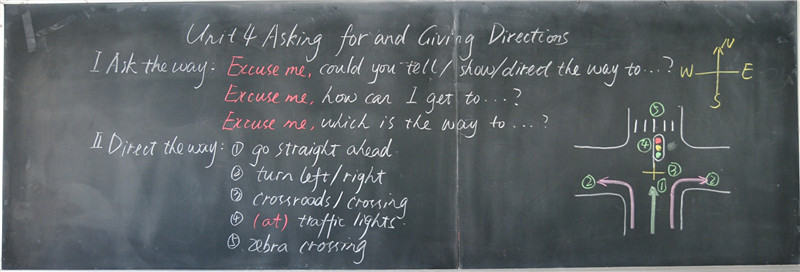 Unit 4 Asking for and Giving Directions
I Ask the way: Excuse me, could you tell/show/direct the way to...?
Excuse me, how can I get to...?
Excuse me, which is the way to...?
II Direct the way: ① go straight ahead
② turn left/right
③ crossroads/crossing
④ (at) traffic lights
⑤ zebra crossing
N
W E
S
⑤
④
③
② ① ②